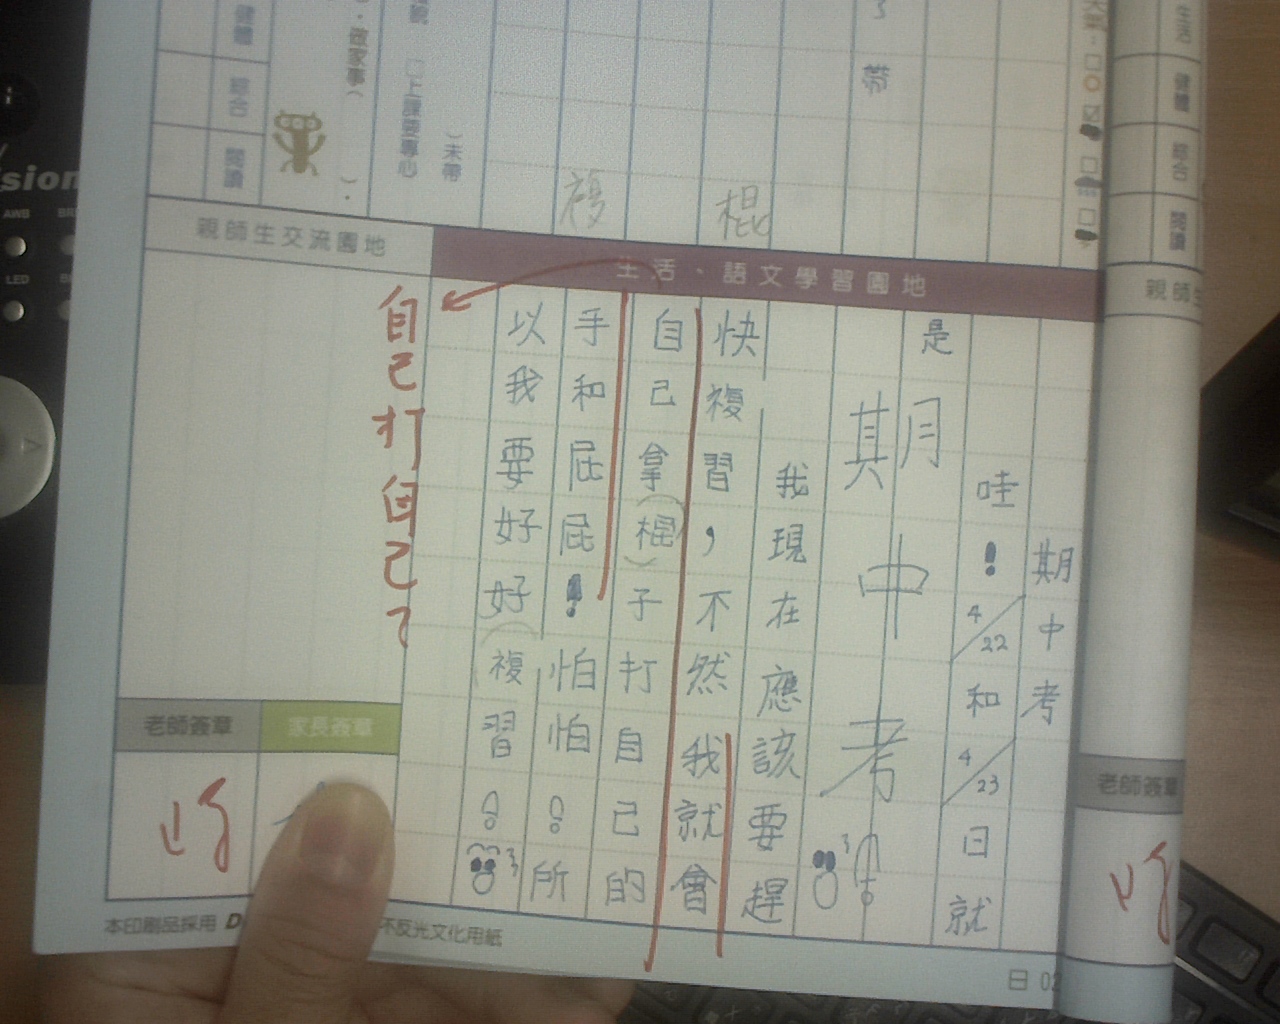 3
帶
健體
綜合
閱讀
做家事
□上課要專心
(未帶
複
棍
生活
健體
綜合
閱讀
親師生交流園地
生活、語文學習園地
期中考
哇！4/22和4/23日就
是
期中考
我現在應該要趕
快複習，不然我就會
自己拿(棍)子打自己的
手和屁屁！怕怕！所
以我要好好(複)習！
自己打自己？
老師簽章
家長簽章
老師簽章
本印刷品採用
不反光文化用紙
日 02
sion
AWB
LED